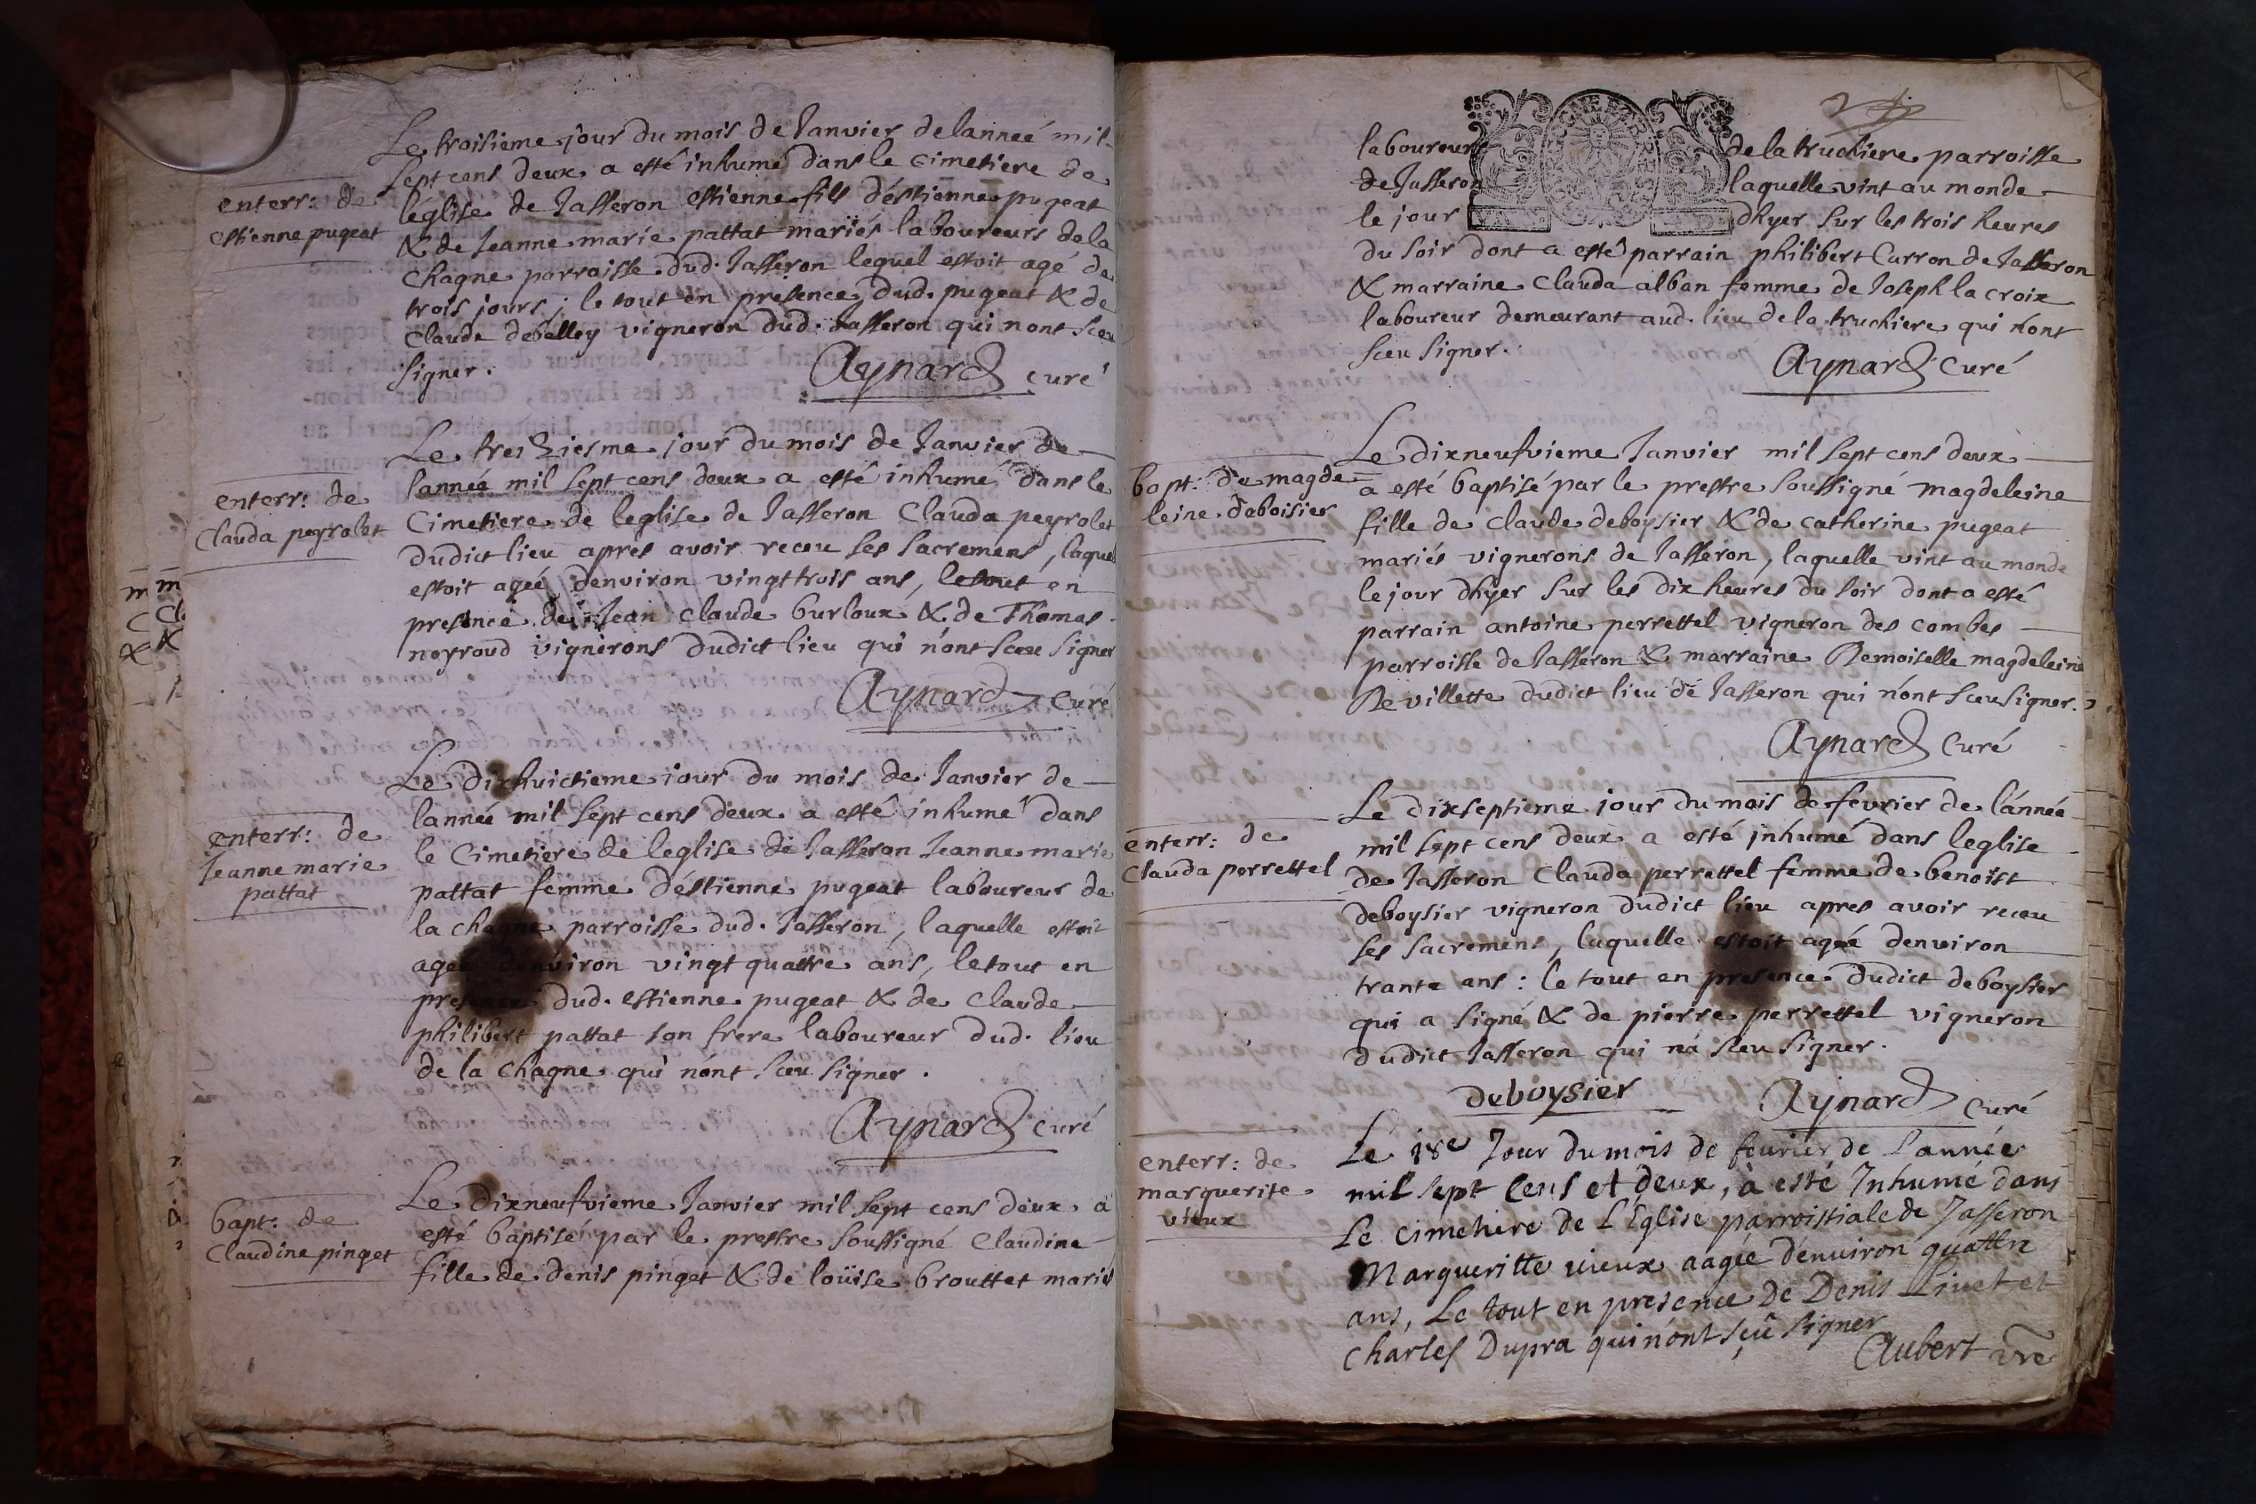 enterr: de
estienne pugeat
Le troisieme jour du mois de Janvier de lanneé mil
sept cens deux a esté inhumé dans le cimetiere de
léglise de Jasseron estienne fils déstienne pugeat
& de Jeanne marie pattat mariés laboureurs de la
Chagne parroisse dud. Jasseron lequel estoit agé de
trois jours; le tout en presence dud. pugeat & de
Claude debelley vigneron dud. Jasseron qui nont sceu
signer.
Aynard curé
enterr: de
Clauda peyrolet
Le treiziesme jour du mois de Janvier de
lannée mil sept cens deux a esté inhumé dans le
Cimetiere de leglise de Jasseron Clauda peyrolet
dudict lieu apres avoir receu ses sacremens, laquel
estoit agée denviron vingt trois ans, le tout en
presence de Jean Claude burloux & de Thomas
neyroud vignerons dudict lieu qui nónt sceu signer
Aynard Curé
enterr: de
Jeanne marie
pattat
Le dixhuictieme jour du mois de Janvier de
lannée mil sept cens deux a esté inhumé dans
le Cimetiere de leglise de Jasseron Jeanne marie
pattat femme déstienne pugeat laboureur de
la chagne parroisse dud. Jasseron, laquelle estoit
ageé denviron vingt quattre ans, le tout en
presence dud. estienne pugeat & de Claude
philibert pattat son frere laboureur dud. lieu
de la Chagne qui nónt sceu signer.
Aynard curé
bapt: de
Claudine pinget
Le dixneufvieme Janvier mil sept cens deux a
esté baptisé par le prestre soussigné Claudine
fille de denis pinget & de loüise brouttet mariés
laboureurs de la truchiere parroisse
de Jasseron laquelle vint au monde
le jour dhyer sur les trois heures
du soir dont a esté parrain philibert Curron de Jasseron
& marraine Clauda alban femme de Joseph la croix
laboureur demeurant aud. lieu de la truchiere qui nónt
sceu signer.
Aynard Curé
bapt: de magde
leine deboisier
Le dixneufvieme Janvier mil sept cens deux
a esté baptisé par le prestre soussigné magdeleine
fille de claude deboysier & de catherine pugeat
mariés vignerons de Jasseron, laquelle vint au monde
le jour dhyer sur les dix heures du soir dont a esté
parrain antoine perrettel vigneron des combes
parroisse de Jasseron & marraine Demoiselle magdeleine
De villette dudict lieu de Jasseron qui nónt sceu signer.
Aynard Curé
enterr: de
Clauda perrettel
Le dixseptieme jour du mois de fevrier de lánnée
mil sept cens deux a esté inhumé dans leglise
de Jasseron Clauda perrettel femme de benoist
deboysier vigneron dudict lieu apres avoir receu
ses sacremens, laquelle estoit ageé denviron
trante ans: le tout en presence dudict deboysier
qui a signé & de pierre perrettel vigneron
dudict Jasseron qui ná sceu signer.
deboysier Aynard curé
enterr: de
marguerite
vieux
Le 18e Jour du mois de feurier de Lannée
mil sept Cens et deux, à esté Inhumé dans
Le cimetiere de LEglise parroissiale de Jasseron
Margueritte uieux aagée dénuiron quattre
ans, Le tout en presence de Denis Piuet et
Charles Dupra qui nónt sçû signer
Aubert vre